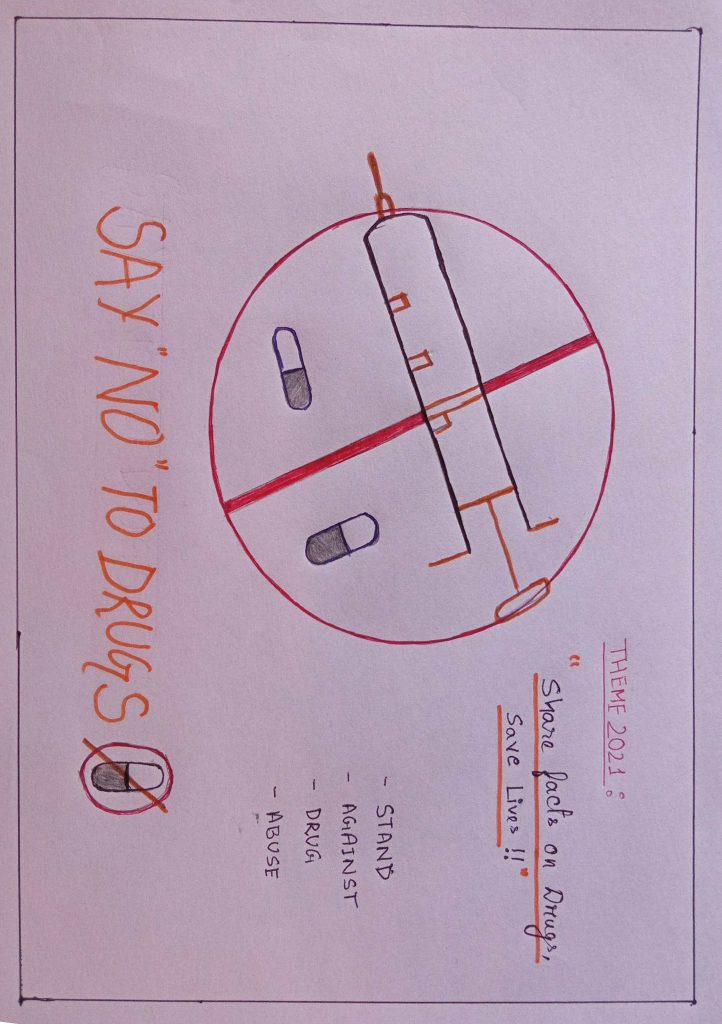 THEME 2021 :
"Share facts on Drugs,
Save Lives !!"
- STAND
- AGAINST
- DRUG
- ABUSE
SAY "NO" TO DRUGS